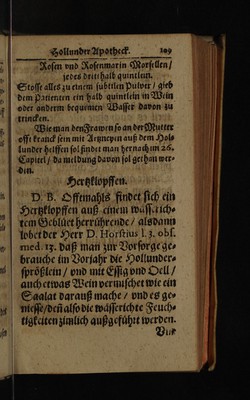 Hollunder Apotheck. 209
Rosen vnd Rosenmarin Morsellen /
jedes dritthalb quintlein.
Stosse alles zu einem subtilen Pulver / gieb
dem Patienten ein halb quintlein in Wein
oder anderm bequemen Wasser davon zu
trincken.
Wie man den Frawen so an der Mutter
offt kranck sein mit Artzneyen auß dem Hol-
lunder helffen sol findet man hernach im 26.
Capitel / da meldung davon sol gethan wer-
den.
Hertzklopffen.
D. B. Offtmahls findet sich ein
Hertzklopffen auß einem wässerich-
tem Geblüet herrührende / alsdann
lobet der Herr D. Horstius l. 3. obs.
med. 13. daß man zur Vorsorge ge-
brauche im Vorjahr die Hollunder-
sprößlein / vnd mit Essig vnd Oell /
auch etwas Wein vermischet wie ein
Saalat darauß mache / vnd es ge-
niesse / deñ also die wässerichte Feuch-
tigkeiten zimlich außgeführt werden.